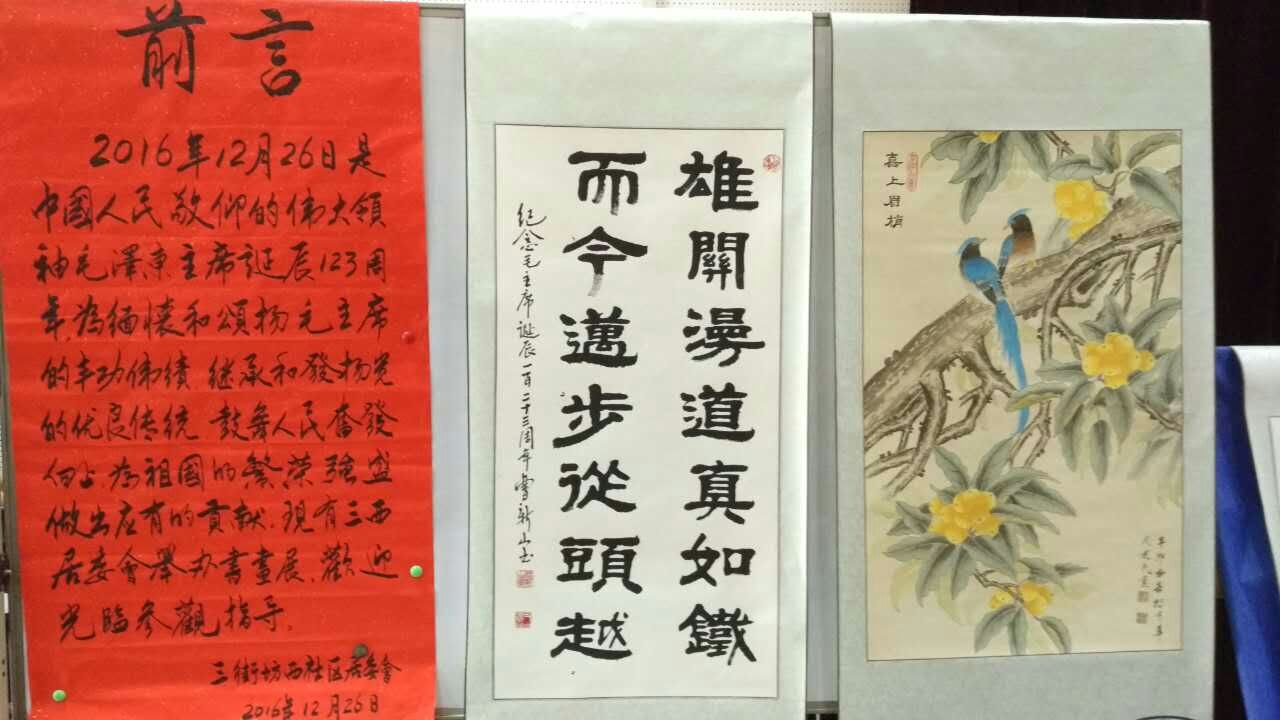 前言
2016年12月26日是
中國人民敬仰的伟大領
袖毛澤東主席誕辰123周
年,為缅懷和頌扬毛主席
的丰功伟績 继承和發扬党
的优良传统 鼓舞人民奮發
向上為祖國的繁荣强盛
做出应有的貢献.現有三西
居委會舉办書畫展、歡迎
光臨参觀指导.
三街坊西社区居委會
2016年12月26日
雄關漫道真如鐵
而今邁步從頭越
纪念毛主席诞辰一百二十三周年
喜上眉梢